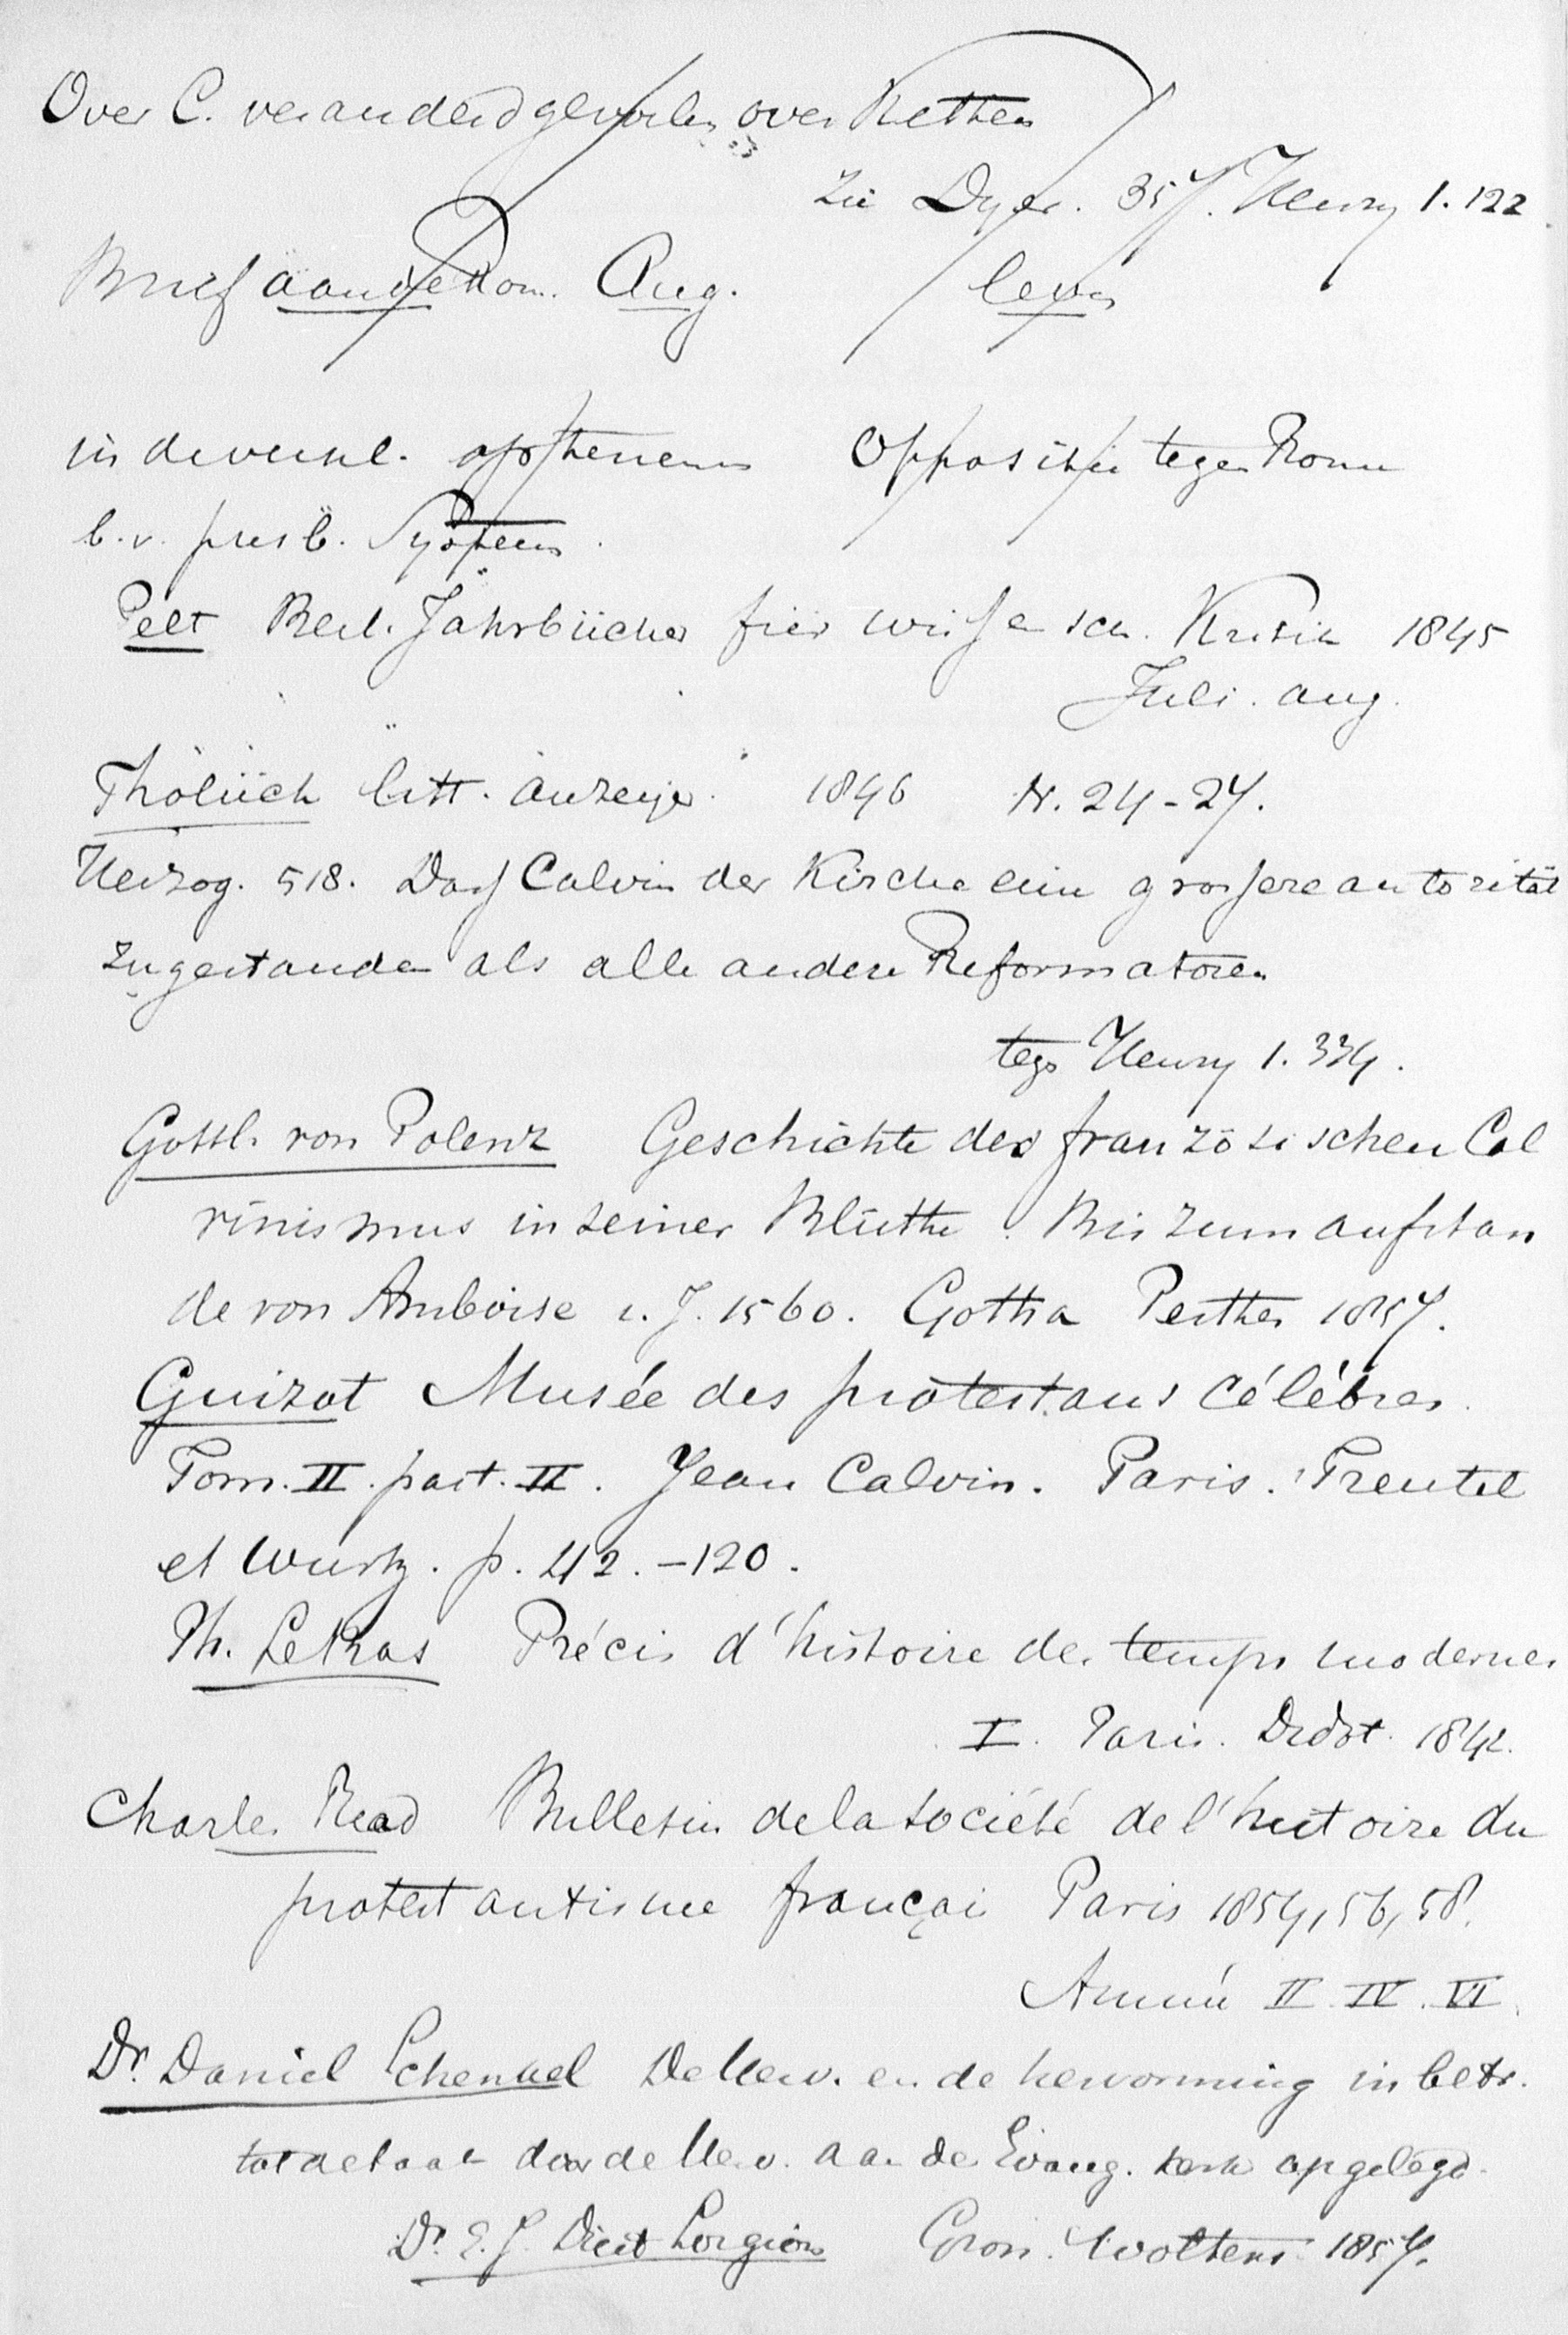 Over C. veranderd gevoelen over Ketters
Zie Dyer. 357. Henry 1. 122
Brief aan de Rom. Aug. lezen
in de verkl. Oppositie tegen Rome
b.v. presb. Systeem.
Pelt Berl. Jahrbücher für wissensch. Kritik 1845
Juli. Aug.
Tholück litt. Anzeiger. 1846 N. 24-27.
Herzog. 518. Dass Calvin der Kirche eine grossere autorität
zugestanden als alle andere Reformatoren
tegen Henry 1. 334.
Gottl. von Polenz Geschichte des französischen Cal
vinismus in seiner Blüthe. Bis zum aufstan
de von Amboise i. J. 1560. Gotha Perthes 1857.
Guizot Musée des protestans célébres.
Tom. II. part. II. Jean Calvin. Paris. Treutel
et Wurtz. p. 42.-120.
Ph. LeBas Précis d'histoire des temps modernes
I. Paris. Didot. 1842.
Charles Read Bulletin de la société de l'histoire du
protestantisme françai Paris 1854, 56, 58.
Année II. IV. VI.
Dr. Daniel Schenkel De Herv. en de hervorming in betr.
tot de taak door de Herv. aan de Evang. kerk opgelegd.
Dr. E. J. Diest Lorgion Gron. Wolters 1857.